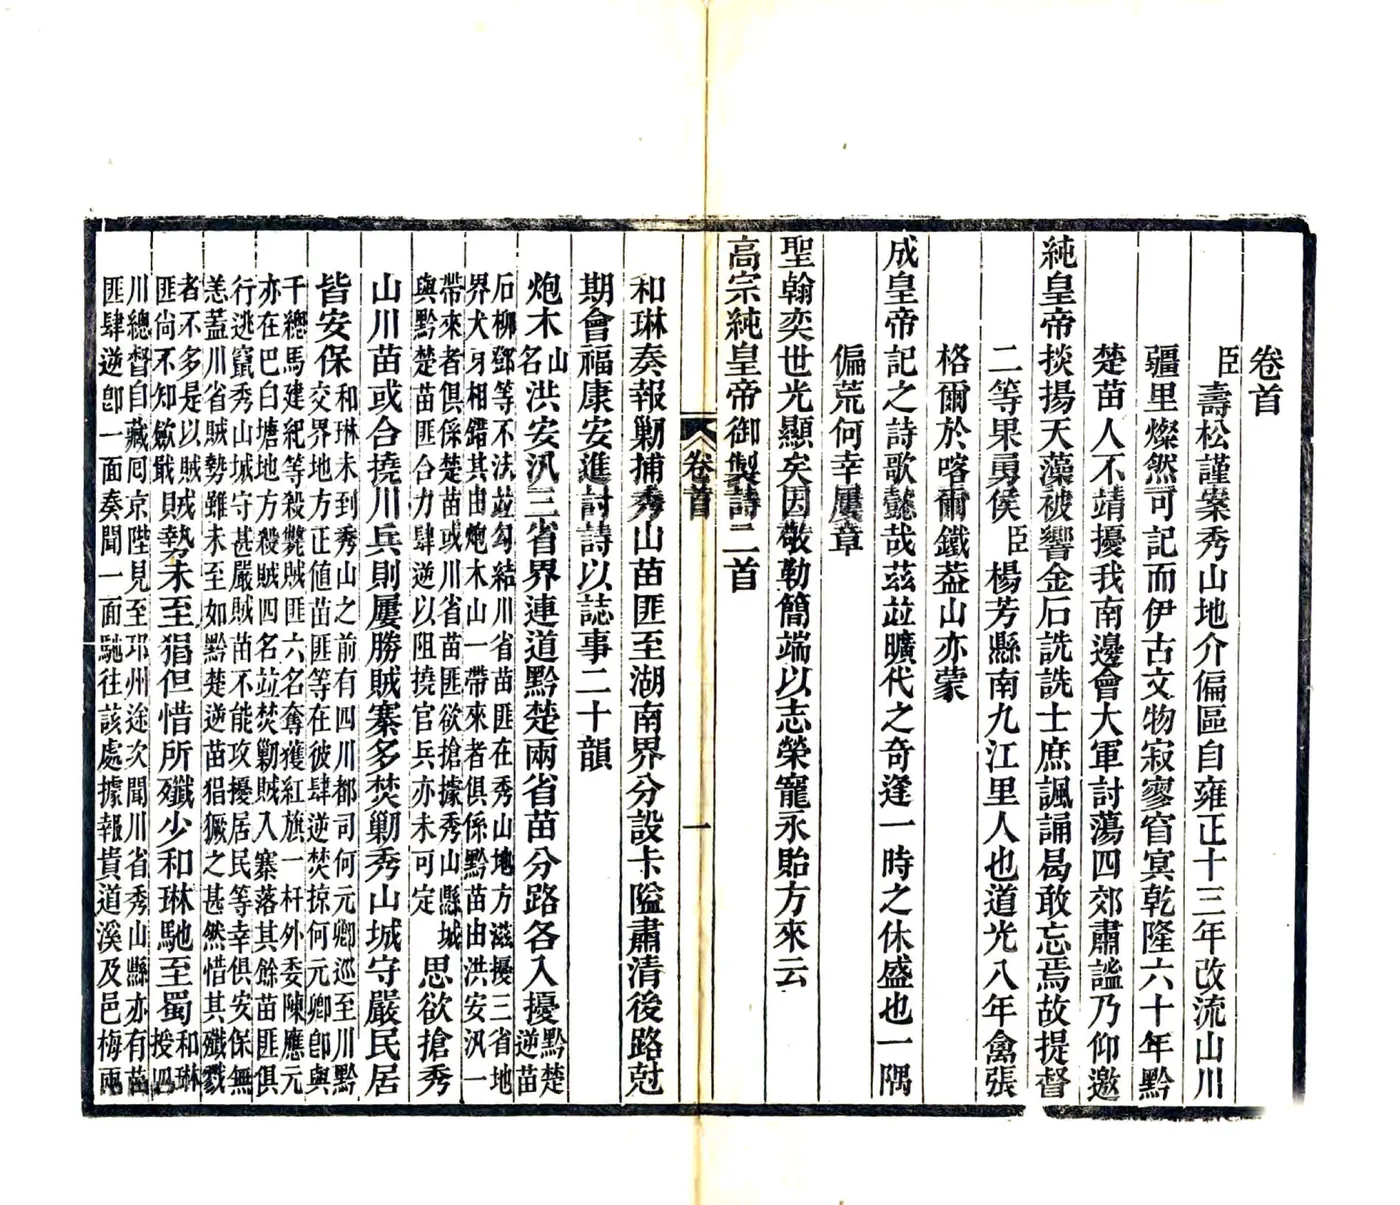 卷首
臣壽松謹案秀山地介偏區自雍正十三年改流山川
疆里燦然可記而伊古文物寂寥窅冥乾隆六十年黔
楚苗人不靖擾我南邊會大軍討蕩四郊肅謐乃仰邀
純皇帝掞揚天藻被響金石詵詵士庶諷誦曷敢忘焉故提督
二等果勇侯臣楊芳縣南九江里人也道光八年禽張
格爾於喀爾鐵葢山亦蒙
成皇帝記之詩歌懿哉茲竝曠代之奇逢一時之休盛也一隅
偏荒何幸屢章
聖翰奕世光顯矣因敬勒簡端以志榮寵永貽方來云
高宗純皇帝御製詩二首
卷首
一
和琳奏報勦捕秀山苗匪至湖南界分設卡隘肅清後路尅
期會福康安進討詩以誌事二十韻
炮木山名洪安汛三省界連道黔楚兩省苗分路各入擾黔楚逆苗
石柳鄧等不法竝勾結川省苗匪在秀山地方滋擾三省地
界犬牙相錯其由炮木山一帶來者俱係黔苗由洪安汛一
帶來者俱係楚苗或川省苗匪欲搶據秀山縣城
與黔楚苗匪合力肆逆以阻撓官兵亦未可定思欲搶秀
山川苗或合撓川兵則屢勝賊寨多焚勦秀山城守嚴民居
皆安保和琳未到秀山之前有四川都司何元卿巡至川黔
交界地方正値苗匪等在彼肆逆焚掠何元卿卽與
千總馬建紀等殺斃賊匪六名奪獲紅旗一杆外委陳應元
亦在巴白塘地方殺賊四名竝焚勦賊入寨落其餘苗匪俱
行逃竄秀山城守甚嚴賊苗不能攻擾居民等幸俱安保無
恙葢川省賊勢雖未至如黔楚逆苗猖獗之甚然惜其殲戮
者不多是以賊
匪尙不知歛戢賊勢未至猖但惜所殲少和琳馳至蜀和琳授四
川總督自藏囘京陛見至邛州途次聞川省秀山縣亦有苗
匪肆逆卽一面奏聞一面馳往該處據報貴道溪及邑梅兩